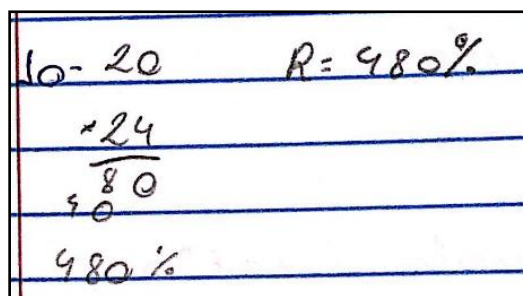 10- 20 R= 480%
×24
80
40
480%